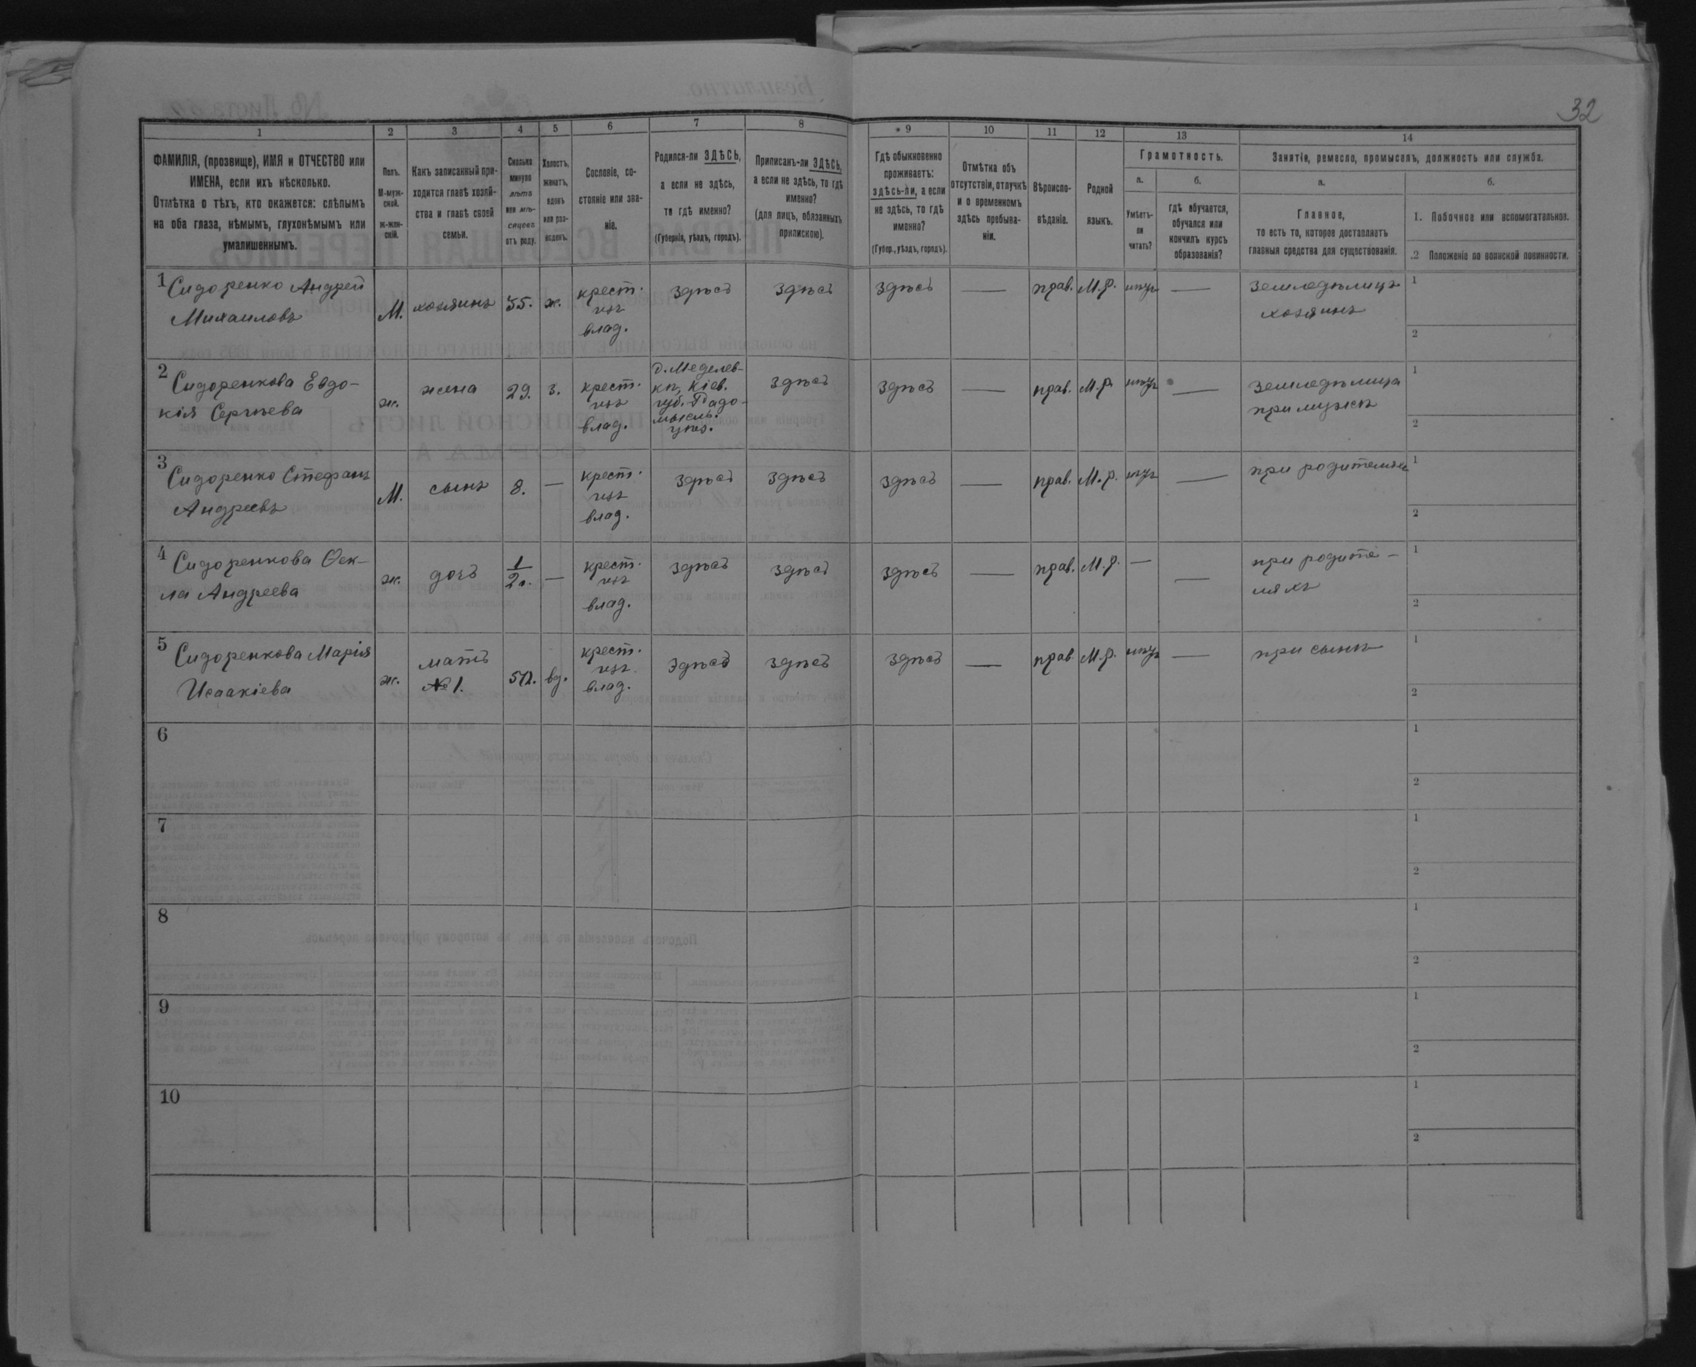 32
1 2 3 4 5 6 7 8 9 10 11 12 13 14
ФАМИЛІЯ, (прозвище), ИМЯ и ОТЧЕСТВО или
ИМЕНА, если ихъ нѣсколько.
Отмѣтка о тѣхъ, кто окажется: слѣпымъ
на оба глаза, нѣмымъ, глухонѣмымъ или
умалишеннымъ.
Полъ.
М-муж-
ской.
ж-жен-
скій.
Какъ записанный при-
ходится главѣ хозяй-
ства и главѣ своей
семьи.
Сколько
минуло
лѣтъ
или мѣ-
сяцевъ
отъ роду.
Холостъ,
женатъ,
вдовъ
или раз-
веденъ.
Сословіе, со-
стояніе или зва-
ніе.
Родился-ли ЗДѢСЬ,
а если не здѣсь,
то гдѣ именно?
(Губернія, уѣздъ, городъ).
Приписанъ-ли ЗДѢСЬ,
а если не здѣсь, то гдѣ
именно?
(для лицъ, обязанныхъ
припискою).
Гдѣ обыкновенно
проживаетъ:
здѣсь-ли, а если
не здѣсь, то гдѣ
именно?
(Губер., уѣздъ, городъ).
Отмѣтка объ
отсутствіи, отлучкѣ
и о временномъ
здѣсь пребыва-
ніи.
Вѣроиспо-
вѣданіе.
Родной
языкъ.
Грамотность.
а.
Умѣетъ-
ли
читать?
б.
гдѣ обучается,
обучался или
кончилъ курсъ
образованія?
Занятіе, ремесло, промыселъ, должность или служба.
а.
Главное,
то есть то, которое доставляетъ
главныя средства для существованія.
б.
1. Побочное или вспомогательное.
2 Положеніе по воинской повинности.
1 Сидоренко Андрей
Михаиловъ
М. хозяинъ 55. ж.
крест.
изъ
влад.
здѣсь здѣсь здѣсь — прав. М.р. — 
земледѣлецъ
хозяинъ
1
2
2 Сидоренкова Евдо-
кія Сергѣева
ж. жена 29. з.
крест.
изъ
влад.
Кіев.
губ. Радо-
мысль.
здѣсь здѣсь — прав. М.р. —
земледѣлица
при мужѣ
1
2
3 Сидоренко Стефанъ
Андреевъ
М. сынъ 8. —
крест.
изъ
влад.
здѣсь здѣсь здѣсь — прав. М.р. —
при родителяхъ
1
2
4 Сидоренкова Ѳек-
ла Андреева
ж. дочъ 1/2 г. —
крест.
изъ
влад.
здѣсь здѣсь здѣсь — прав. М.р. — —
при родите-
ляхъ
1
2
5 Сидоренкова Марія
Исаакіева
ж. мать
№ 1.
вд.
крест.
изъ
влад.
здѣсь здѣсь здѣсь — прав. М.р. —
при сынѣ
1
2
6
1
2
7
1
2
8
1
2
9
1
2
10
1
2